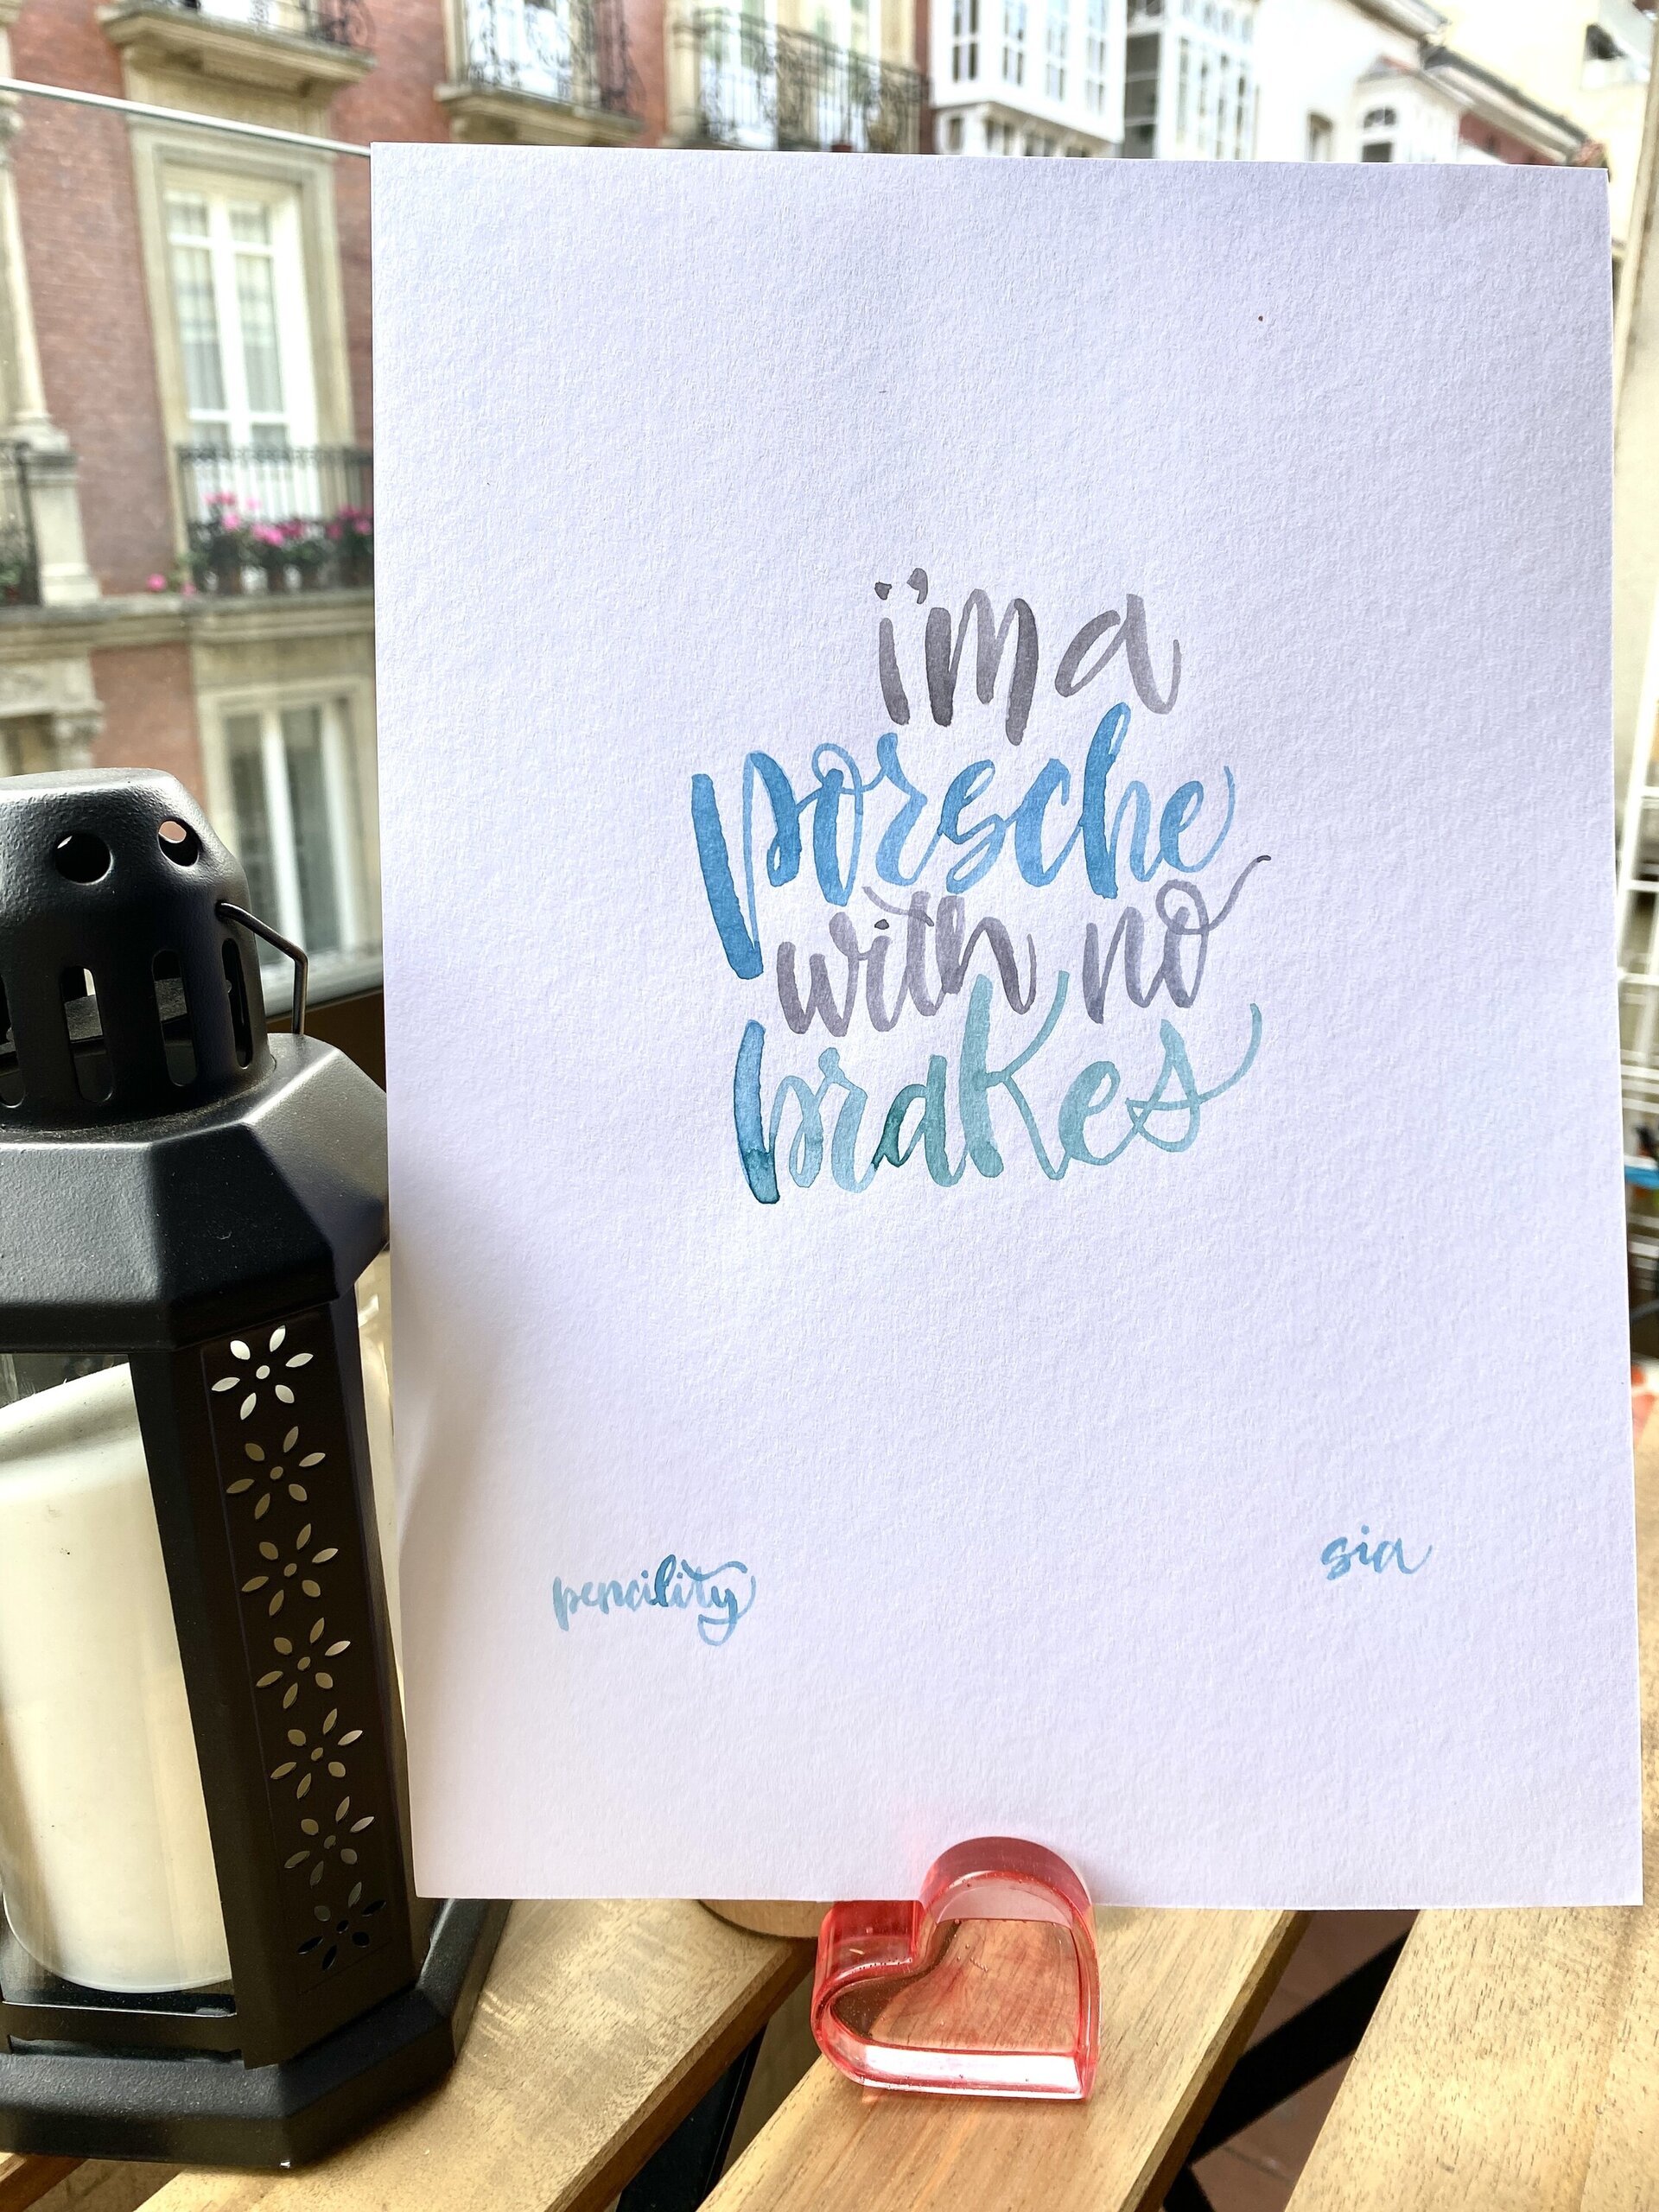 i'm a
porsche
with no
brakes
pencility
sia